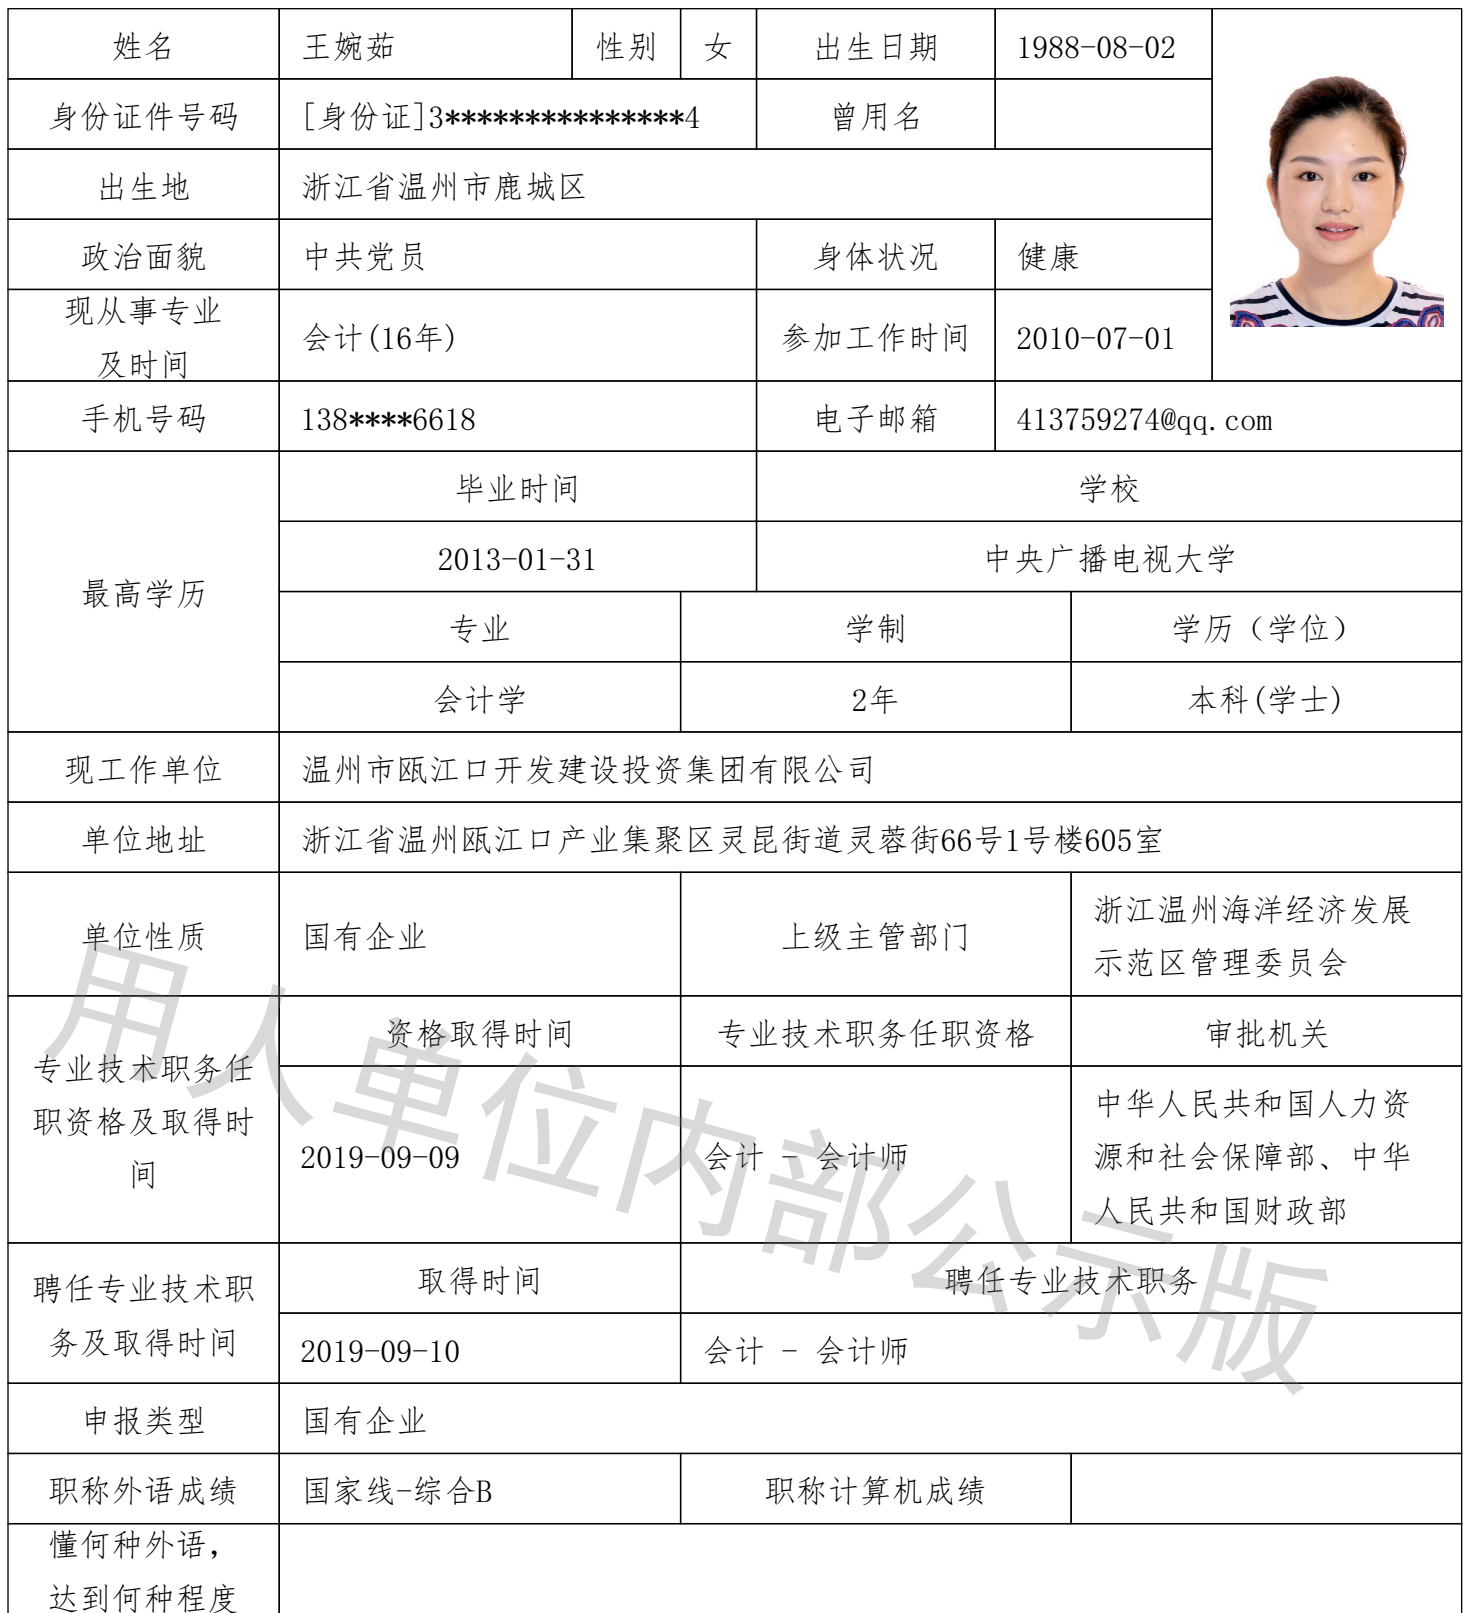 姓名 王婉茹 性别 女 出生日期 1988-08-02
身份证件号码 [身份证]3***************4 曾用名
出生地 浙江省温州市鹿城区
政治面貌 中共党员 身体状况 健康
现从事专业
及时间
会计(16年) 参加工作时间 2010-07-01
手机号码 138****6618 电子邮箱 413759274@qq.com
最高学历
毕业时间 学校
2013-01-31 中央广播电视大学
专业 学制 学历（学位）
会计学 2年 本科(学士)
现工作单位 温州市瓯江口开发建设投资集团有限公司
单位地址 浙江省温州瓯江口产业集聚区灵昆街道灵蓉街66号1号楼605室
单位性质 国有企业 上级主管部门
浙江温州海洋经济发展
示范区管理委员会
专业技术职务任
职资格及取得时
间
资格取得时间 专业技术职务任职资格 审批机关
2019-09-09 会计 - 会计师
中华人民共和国人力资
源和社会保障部、中华
人民共和国财政部
聘任专业技术职
务及取得时间
取得时间 聘任专业技术职务
2019-09-10 会计 - 会计师
申报类型 国有企业
职称外语成绩 国家线-综合B 职称计算机成绩
懂何种外语，
达到何种程度
用人单位内部公示版